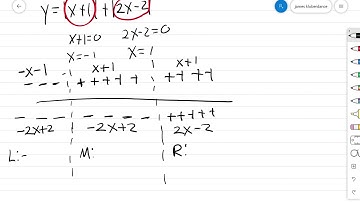 James Sloberdance
y = |x+1| + |2x-2|
x+1=0 2x-2=0
x=-1 x=1
-x-1 x+1 x+1
- - - + + + + + + + + +
- - - - - - - + + + + +
-2x+2 -2x+2 2x-2
L:- M: R: